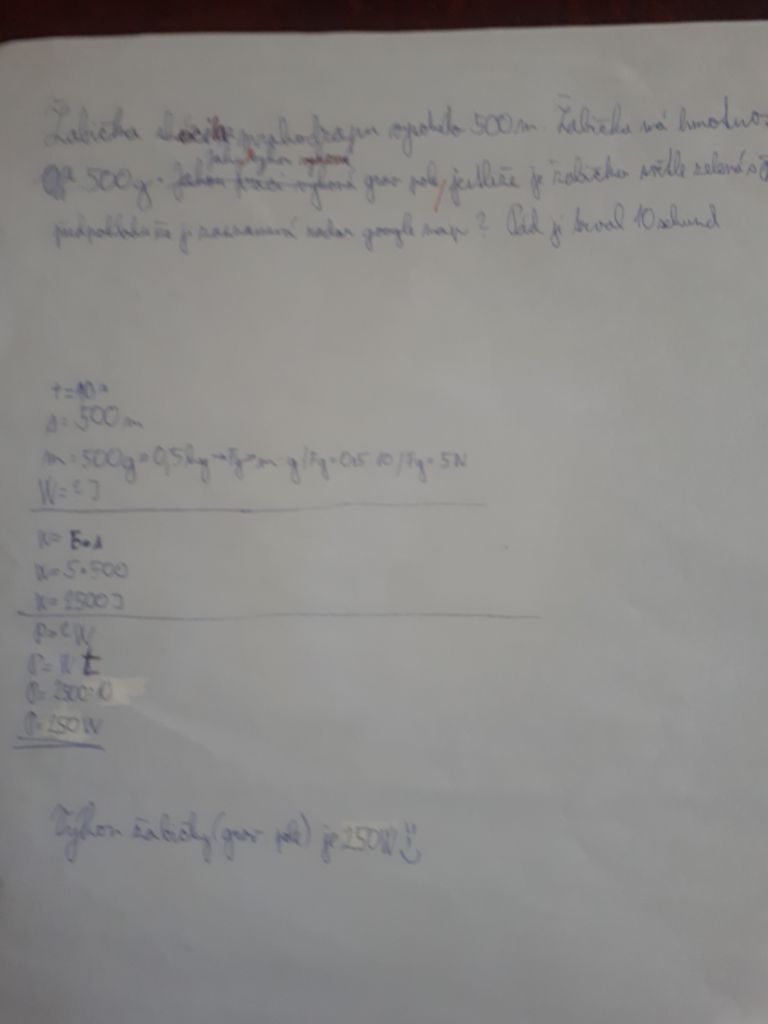 Žabička skočila z mrakodrapu vysokého 500 m. Žabička má hmotnos
500g. Jaký výkon
Jakou práci vykoná grav pole, jestliže je žabička světle zelená a
předpokládáme je zaznamená radar google map? Pád jí trval 10 sekund
t=10s
s=500m
m=500g=0,5kg→Fg=m·g/Fg=0,5·10/Fg=5N
W=?J
W=F·s
W=5·500
W=2500J
P=?W
P=W:t
P=2500:10
P=250W
Výkon žabičky (grav pole) je 250W :)